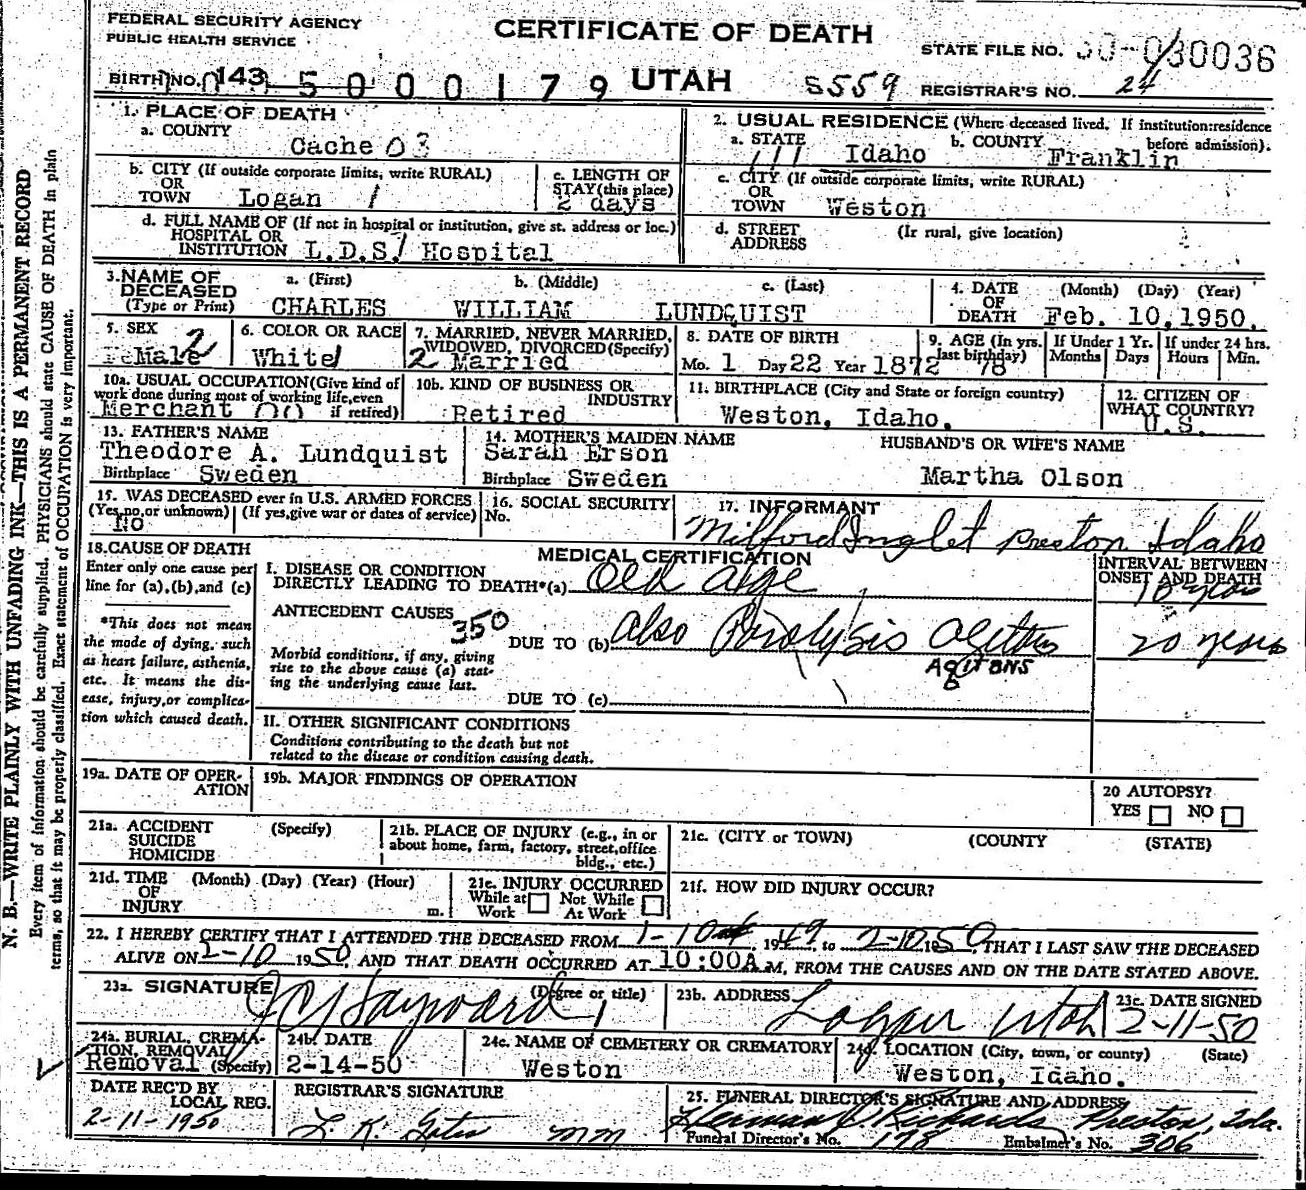 FEDERAL SECURITY AGENCY
PUBLIC HEALTH SERVICE
CERTIFICATE OF DEATH
STATE FILE NO. 50-030036
BIRTH NO. 143 5 0 0 0 1 7 9 UTAH S559 REGISTRAR'S NO. 24
1. PLACE OF DEATH
a. COUNTY
Cache 03
2. USUAL RESIDENCE (Where deceased lived. If institution:residence before admission).
a. STATE Idaho b. COUNTY Franklin
b. CITY (If outside corporate limits, write RURAL)
OR
TOWN Logan 1
c. LENGTH OF
STAY (this place)
2 days
c. CITY (If outside corporate limits, write RURAL)
OR
TOWN Weston
d. FULL NAME OF (If not in hospital or institution, give st. address or loc.)
HOSPITAL OR
INSTITUTION L.D.S. Hospital
d. STREET (If rural, give location)
ADDRESS
3. NAME OF DECEASED (Type or Print)
a. (First) b. (Middle) c. (Last)
CHARLES WILLIAM LUNDQUIST
4. DATE OF DEATH (Month) (Day) (Year)
Feb. 10, 1950.
5. SEX
Male 2
6. COLOR OR RACE
White 1
7. MARRIED, NEVER MARRIED,
WIDOWED, DIVORCED (Specify)
2 Married
8. DATE OF BIRTH
Mo. 1 Day 22 Year 1872
9. AGE (In yrs. last birthday)
78
If Under 1 Yr. Months Days
If under 24 hrs. Hours Min.
10a. USUAL OCCUPATION (Give kind of
work done during most of working life, even
if retired)
Merchant 00
10b. KIND OF BUSINESS OR
INDUSTRY
Retired
11. BIRTHPLACE (City and State or foreign country)
Weston, Idaho.
12. CITIZEN OF
WHAT COUNTRY?
U.S.
13. FATHER'S NAME
Theodore A. Lundquist
Birthplace Sweden
14. MOTHER'S MAIDEN NAME
Sarah Erson
Birthplace Sweden
HUSBAND'S OR WIFE'S NAME
Martha Olson
15. WAS DECEASED ever in U.S. ARMED FORCES
(Yes, no, or unknown) (If yes, give war or dates of service)
No
16. SOCIAL SECURITY
No.
17. INFORMANT
Milford Inglet Preston Idaho
18. CAUSE OF DEATH
Enter only one cause per
line for (a), (b), and (c)
*This does not mean
the mode of dying, such
as heart failure, asthenia,
etc. It means the dis-
ease, injury, or complica-
tion which caused death.
MEDICAL CERTIFICATION
INTERVAL BETWEEN
ONSET AND DEATH
I. DISEASE OR CONDITION
DIRECTLY LEADING TO DEATH*(a) Old Age years
ANTECEDENT CAUSES 350
DUE TO (b) Also Paralysis Agitans 20 years
AGITANS
Morbid conditions, if any, giving
rise to the above cause (a) stat-
ing the underlying cause last.
DUE TO (c)
II. OTHER SIGNIFICANT CONDITIONS
Conditions contributing to the death but not
related to the disease or condition causing death.
19a. DATE OF OPER-
ATION
19b. MAJOR FINDINGS OF OPERATION
20 AUTOPSY?
YES NO
21a. ACCIDENT (Specify)
SUICIDE
HOMICIDE
21b. PLACE OF INJURY (e.g., in or
about home, farm, factory, street, office
bldg., etc.)
21c. (CITY or TOWN) (COUNTY) (STATE)
21d. TIME (Month) (Day) (Year) (Hour)
OF
INJURY m.
21e. INJURY OCCURRED
While at Work Not While At Work
21f. HOW DID INJURY OCCUR?
22. I HEREBY CERTIFY THAT I ATTENDED THE DECEASED FROM 1-10 1949, to 2-10 1950, THAT I LAST SAW THE DECEASED
ALIVE ON 2-10 1950, AND THAT DEATH OCCURRED AT 10:00A.M, FROM THE CAUSES AND ON THE DATE STATED ABOVE.
23a. SIGNATURE (Degree or title)
J C Hayward
23b. ADDRESS
Logan Utah
23c. DATE SIGNED
2-11-50
24a. BURIAL, CREMA-
TION, REMOVAL
Removal (Specify)
24b. DATE
2-14-50
24c. NAME OF CEMETERY OR CREMATORY
Weston
24d. LOCATION (City, town, or county) (State)
Weston, Idaho.
DATE REC'D BY
LOCAL REG.
2-11-1950
REGISTRAR'S SIGNATURE
mm
25. FUNERAL DIRECTOR'S SIGNATURE AND ADDRESS
Richards Preston, Ida.
Funeral Director's No. 178 Embalmer's No. 306
N. B.—WRITE PLAINLY WITH UNFADING INK—THIS IS A PERMANENT RECORD
Every item of information should be carefully supplied. PHYSICIANS should state CAUSE OF DEATH in plain
terms, so that it may be properly classified. Exact statement of OCCUPATION is very important.